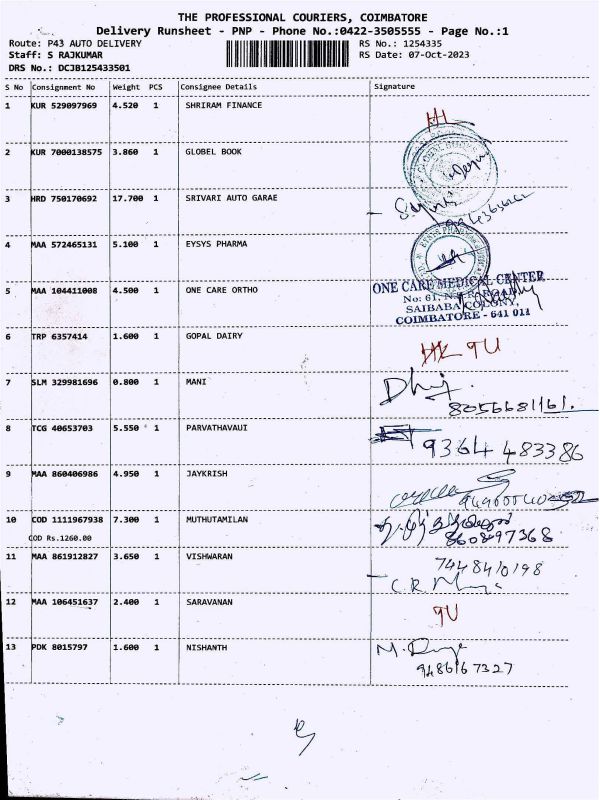 THE PROFESSIONAL COURIERS, COIMBATORE
Delivery Runsheet - PNP - Phone No.:0422-3505555 - Page No.:1
Route: P43 AUTO DELIVERY RS No.: 1254335
Staff: S RAJKUMAR RS Date: 07-Oct-2023
DRS No.: DCJB125433501
S No Consignment No Weight PCS Consignee Details Signature
1 KUR 529097969 4.520 1 SHRIRAM FINANCE
2 KUR 7000138575 3.860 1 GLOBEL BOOK
3 HRD 750170692 17.700 1 SRIVARI AUTO GARAE
4 MAA 572465131 5.100 1 EYSYS PHARMA
5 MAA 104411008 4.500 1 ONE CARE ORTHO
ONE CARE MEDICAL CENTER
No: 61,
SAIBABA COLONY,
COIMBATORE - 641 011
6 TRP 6357414 1.600 1 GOPAL DAIRY
7 SLM 329981696 0.800 1 MANI
8056681161.
8 TCG 40653703 5.550 1 PARVATHAVAUI
9364 483386
9 MAA 860406986 4.950 1 JAYKRISH
10 COD 1111967938 7.300 1 MUTHUTAMILAN
COD Rs.1260.00
860897368
11 MAA 861912827 3.650 1 VISHWARAN
7448410198
12 MAA 106451637 2.400 1 SARAVANAN
9U
13 PDK 8015797 1.600 1 NISHANTH
9486167327